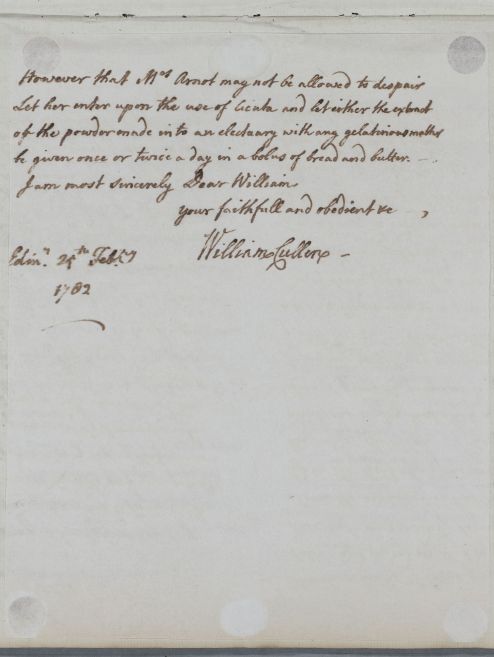 However that Mrs Arnot may not be allowed to despair
Let her enter upon the use of Cicuta and let either the extract
of the powder made into an electuary with any gelatinous matter
be given once or twice a day in a bolus of bread and butter. —.
I am most sincerely Dear William
your faithfull and obedient &c ,
William Cullen —
Edinr. 25th Febry
1782